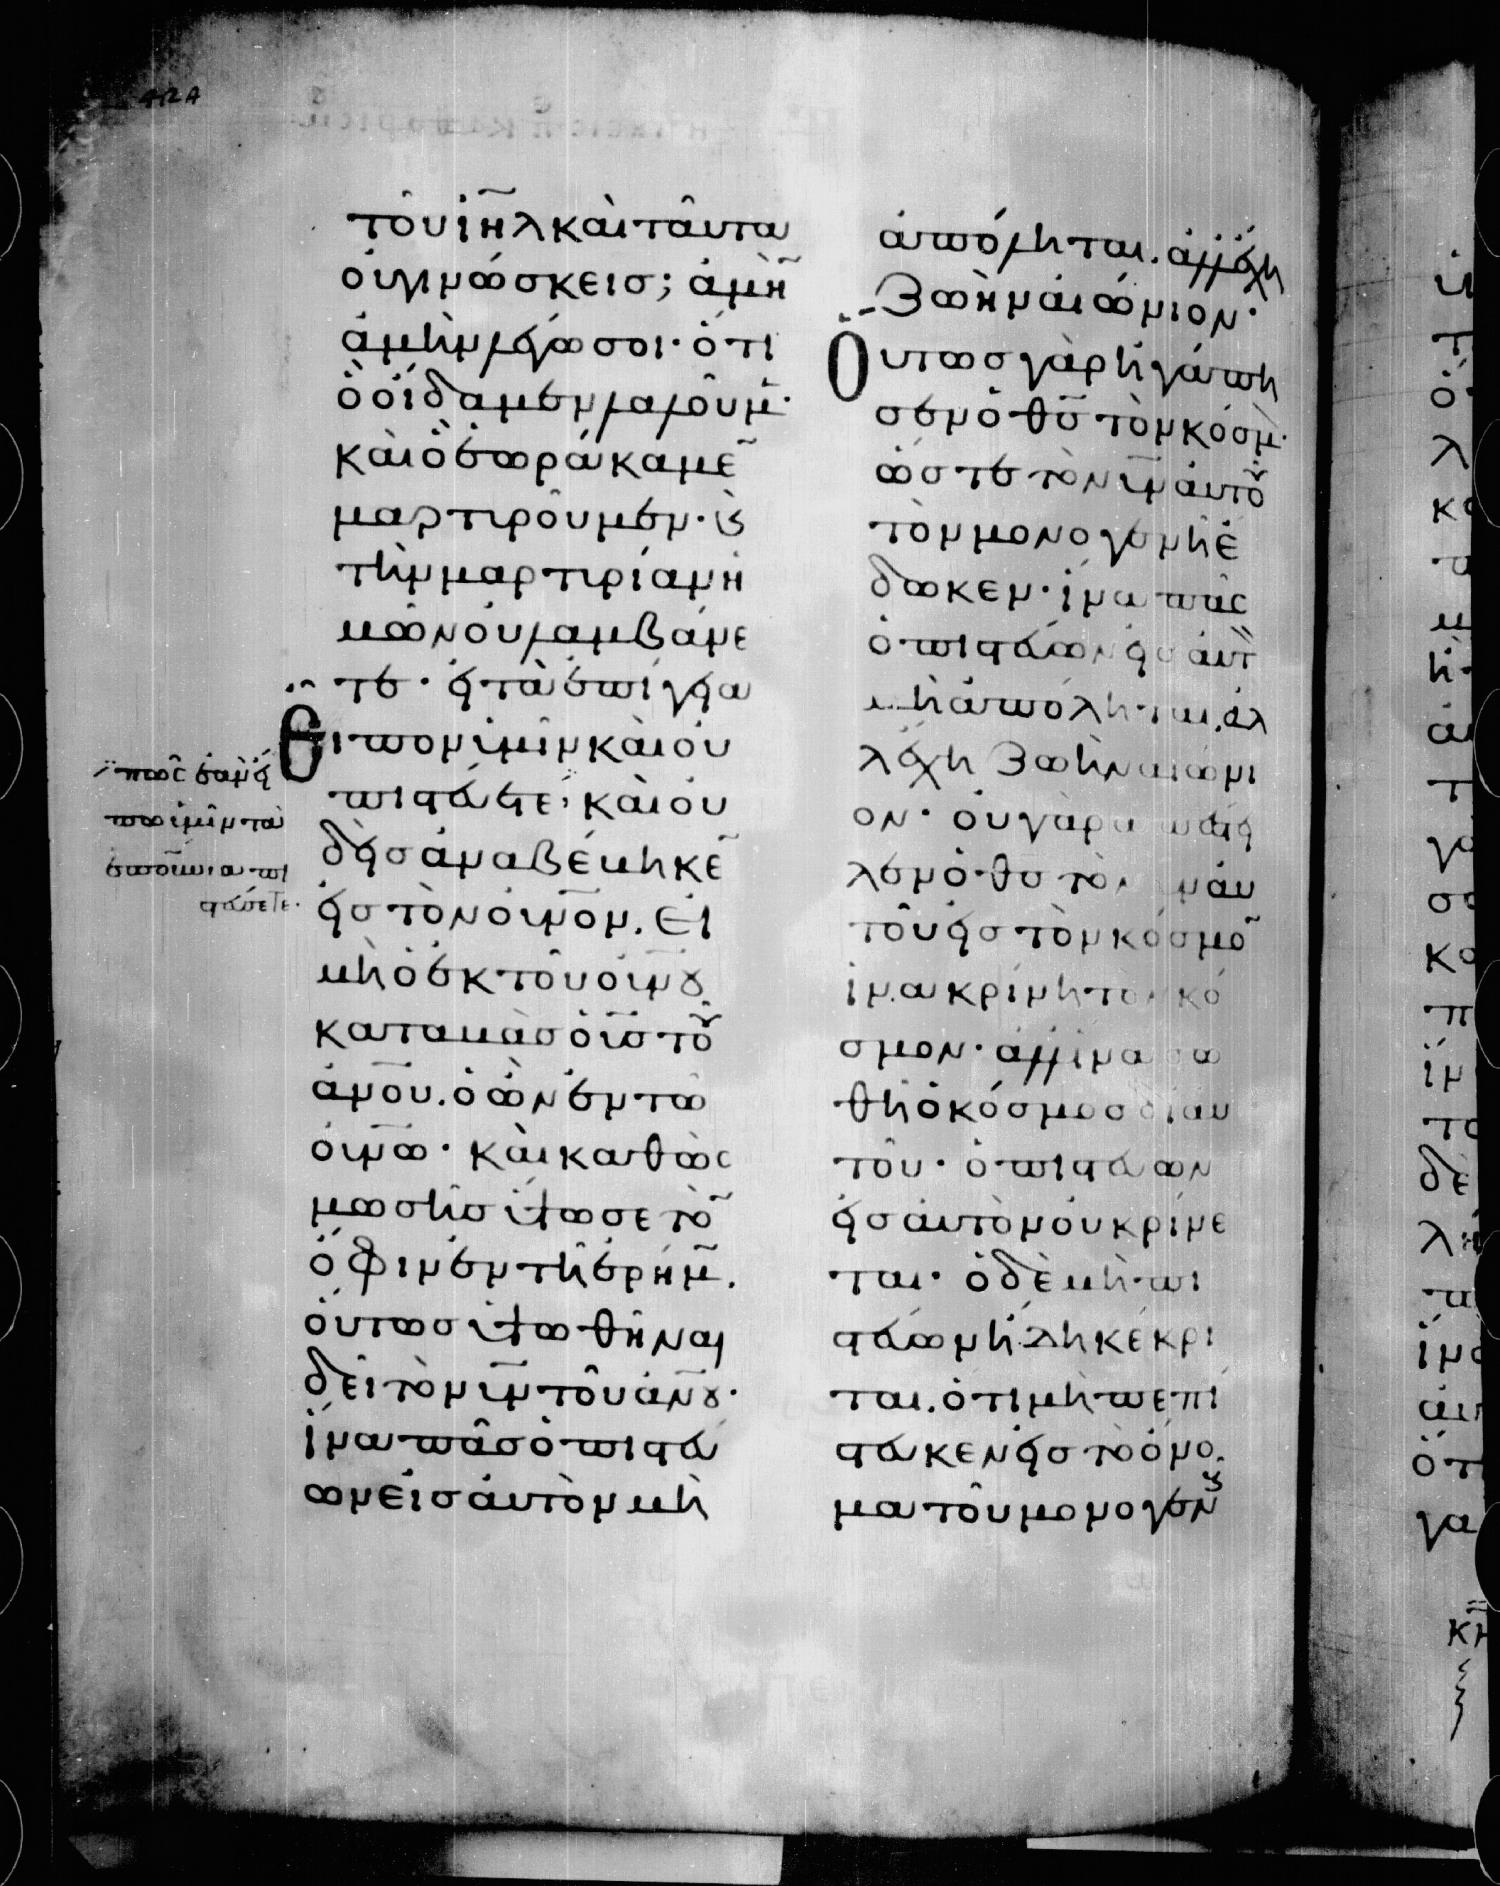 τοῦ ἰη̅λ καὶ ταῦτα
οὐ γινώσκεισ; ἀμὴ̅
ἀμὴν λέγω σοι· ὅτι
ὃ οἴδαμεν λαλοῦμ̅·
καὶ ὃ ἑωράκαμε̅
μαρτιροῦμεν· ϗ
τὴν μαρτιρίαν ἡ
μῶν οὐ λαμβάνε
τε· εἰ τὰ ἐπίγεια
εἶπον ἱμῖν καὶ οὐ
πιστεύετε· καὶ οὐ
δεὶσ ἀναβέβηκε̅
εἰσ τὸν οὐνο̅ν. εἰ
μὴ ὁ ἐκ τοῦ οὐνο̅ῦ
καταβὰσ ὁ υἱ̅σ τοῦ
ἀν̅ου. ὁ ὢν ἐν τῶ
οὐνω̅· καὶ καθὼσ
μωσῆσ ἵψωσε το̅
ὄφιν ἐν τῆ ἐρήμ̅.
οὕτωσ ἱψωθῆναι
δεῖ τὸν υἱ̅ν τοῦ ἀν̅ου·
ἵνα πᾶσ ὁ πιστεύ
ων εἰσ αὐτὸν μὴ
πῶσ ἐὰν εἴ
πω ἱμῖν τὰ
ἐπουνια πι
στεύσετε·
ἀπόληται. ἀλλ' ἔχη
ζωὴν αἰώνιον·
Οὕτωσ γὰρ ἠγάπη
σεν ὁ θ̅σ τὸν κόσμ̅·
ὥστε τὸν υἱ̅ν αὐτοῦ
τὸν μονογενῆ ἔ
δωκεν· ἵνα πᾶσ
ὁ πιστεύων εἰσ αὐτ̀
μὴ ἀπόληται. ἀλ
λ' ἔχη ζωὴν αἰώνι
ον· οὐ γὰρ ἀπέστει
λεν ὁ θ̅σ τὸν υἱ̅ν αὐ
τοῦ εἰσ τὸν κόσμο̅
ἵνα κρίνη τὸν κό
σμον· ἀλλ' ἵνα σω
θῆ ὁ κόσμοσ δι' αὐ
τοῦ· ὁ πιστεύων
εἰσ αὐτὸν οὐ κρίνε
ται· ὁ δὲ μὴ πι
στεύων ἤδη κέκρι
ται. ὅτι μὴ πεπί
στευκεν εἰσ τὸ ὄνο
μα τοῦ μονογενοῦ